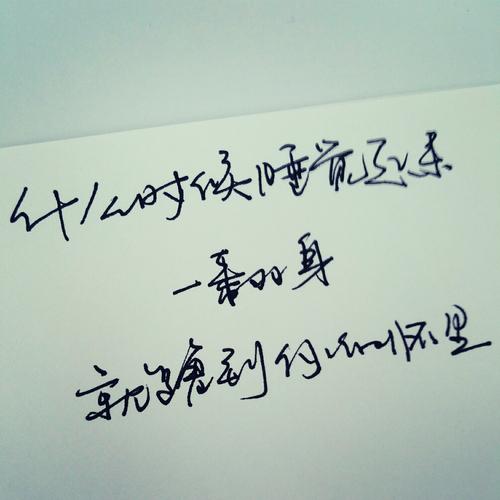 什么时候睡觉来
一翻身
就到你的怀里